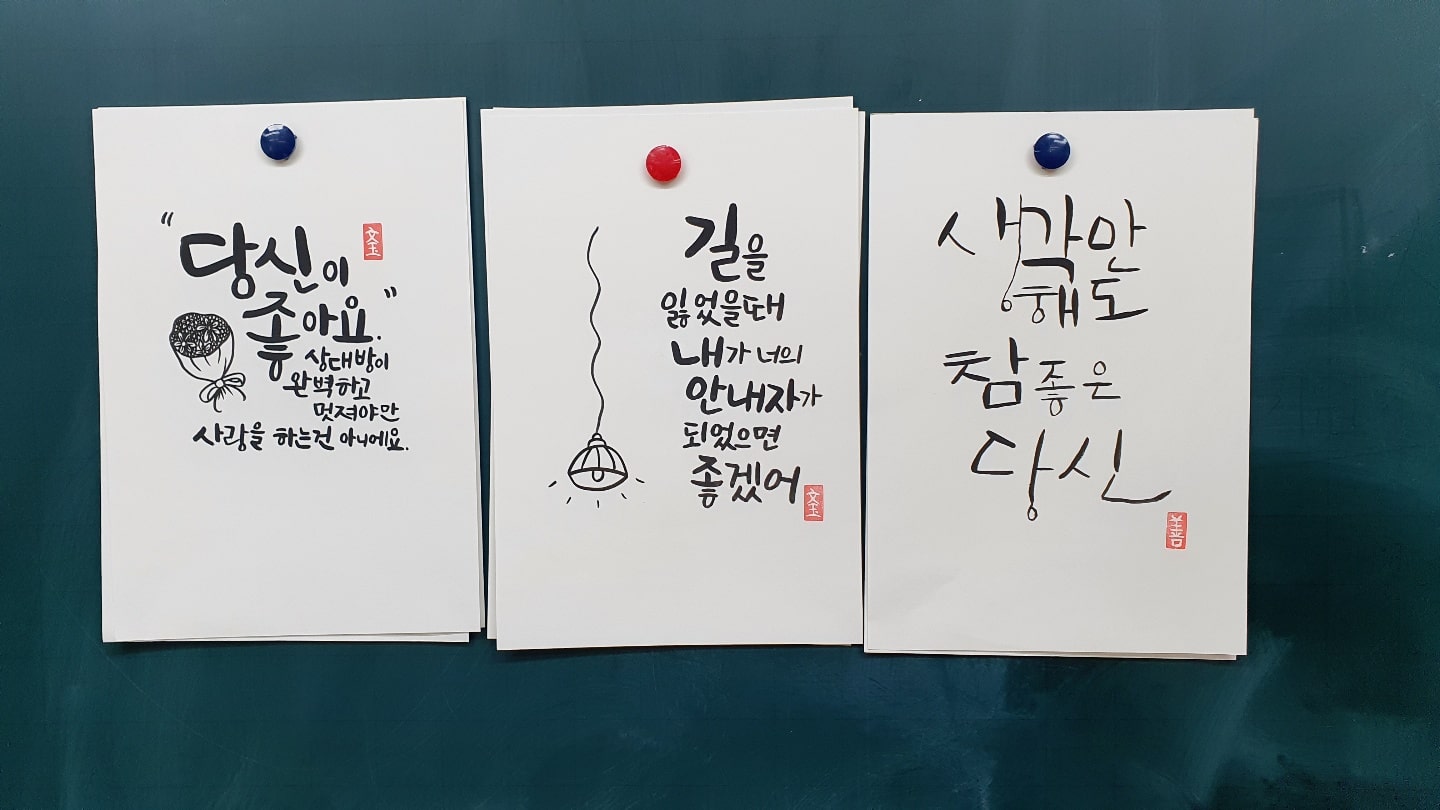 “당신이
좋아요.”
상대방이
완벽하고
멋져야만
사랑을 하는건 아니에요.
길을
잃었을때
내가 너의
안내자가
되었으면
좋겠어
생각만
해도
참 좋은
당신
善